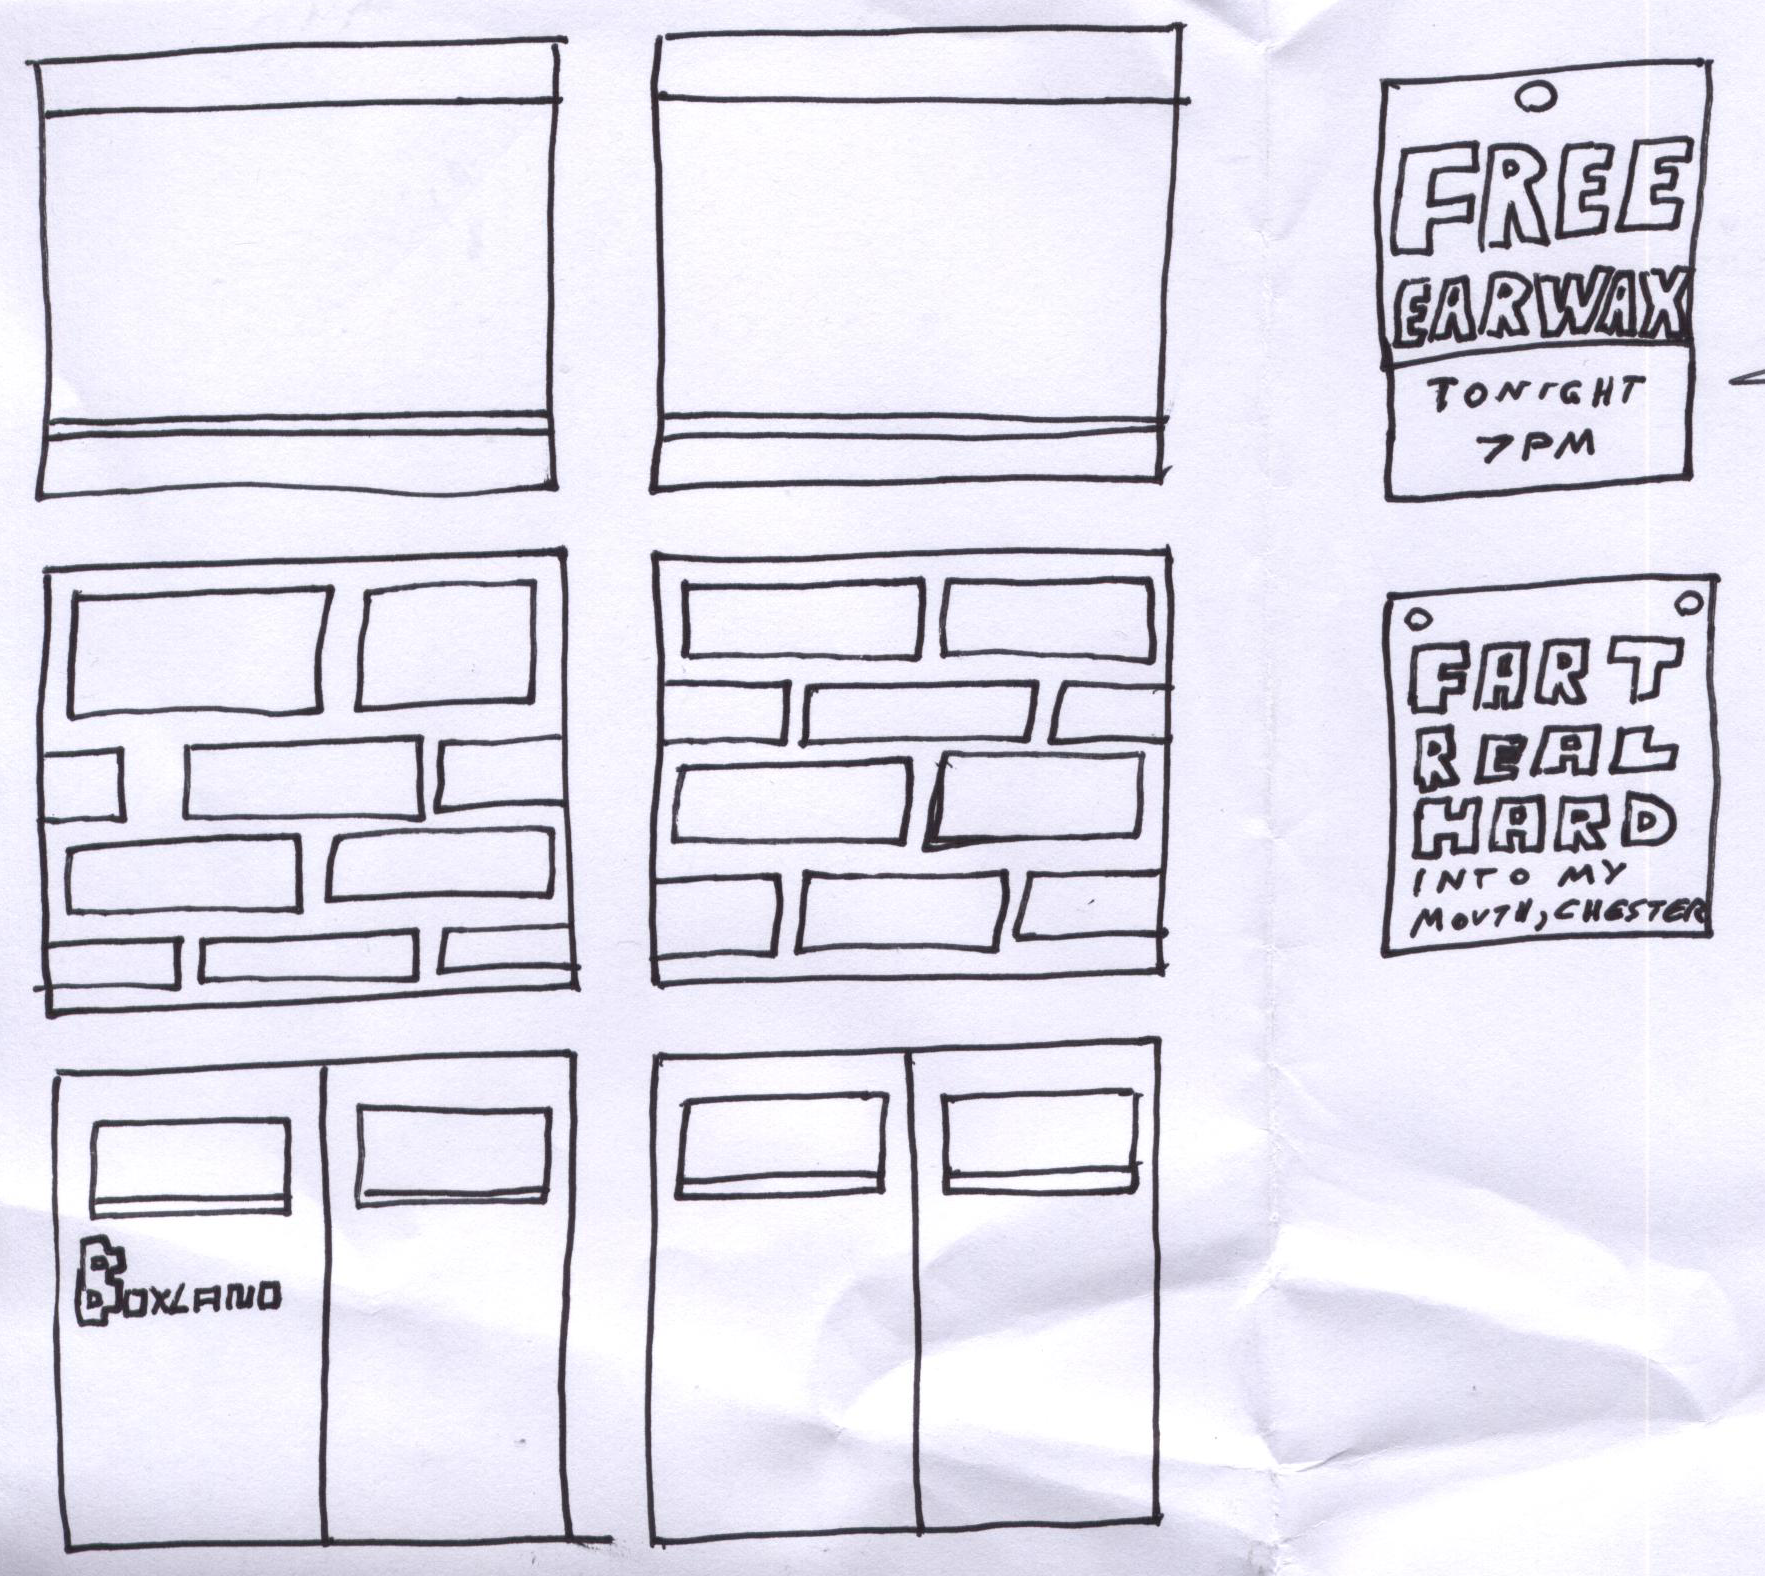 FREE
EARWAX
TONIGHT
7PM
FART
REAL
HARD
INTO MY
MOUTH, CHESTER
BOXLAND